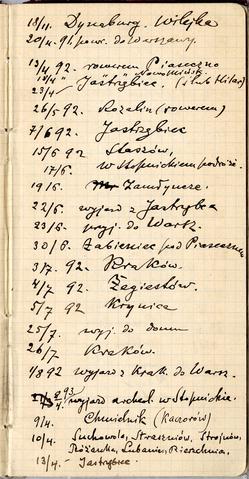 18/11. Dynaburg. Wilejka
20/4. 91. pow. do Warszawy.
13/4 92. rowerem Piaseczno
23/4 " Jastrzębiec.
26/5 92. Rozalin (rowerem)
7/6 92. Jastrzębiec
15/6 92 Staszów,
17/6. w Stopnickiem podróż.
19/6.
22/6. wyjazd z Jastrzębca
23/6. przyj. do Warsz.
30/6. Żabieniec pod Piasecznem
3/7. 92. Kraków.
4/7 92. Żegiestów.
5/7 92. Krynica
25/7. wyj. do domu
26/7 Kraków.
1/8 92 wyjazd z Krak. do Warsz.
93 wyjazd archeol. w Stopnickie.
9/4. Chmielnik
10/4. Suchowola, Strzyżów,
Pierzchnica.
13/4. Jastrzębiec.